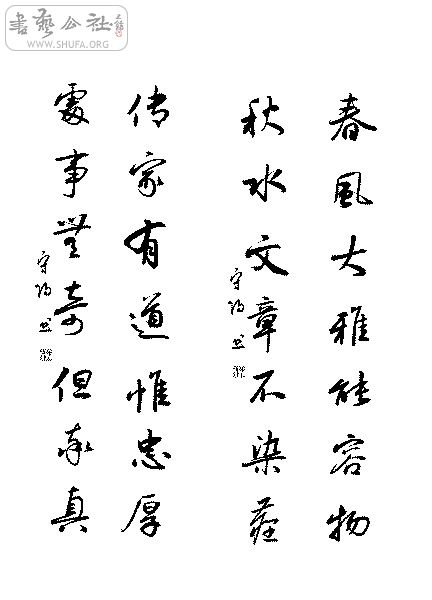 書藝公社
WWW.SHUFA.ORG
春風大雅能容物
秋水文章不染塵
守 书
传家有道惟忠厚
處事無奇但率真
守 书